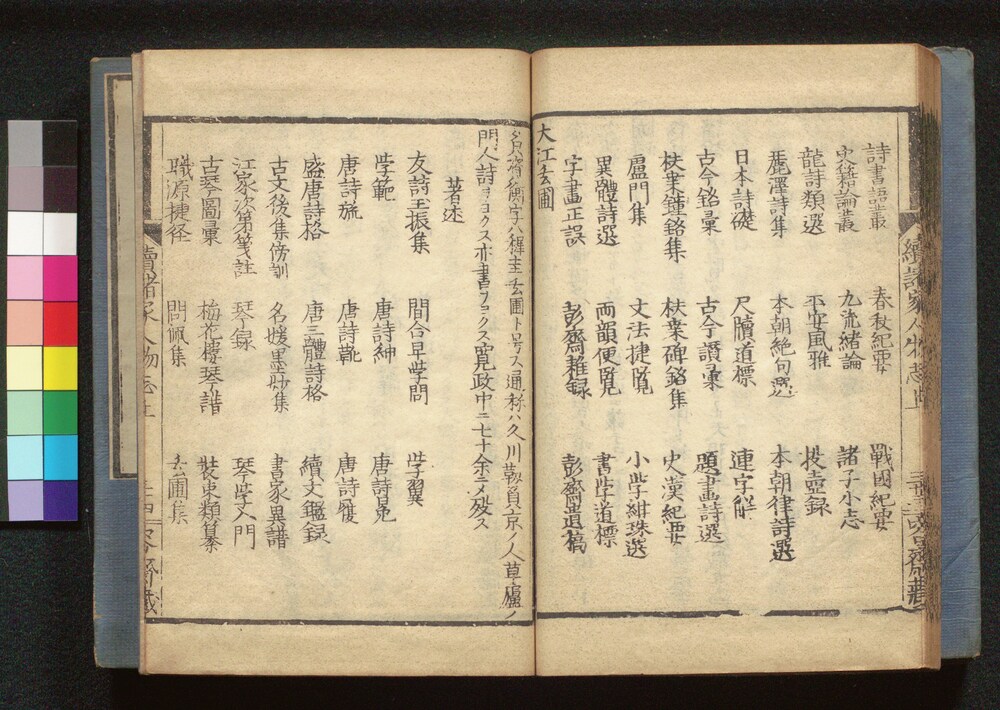 詩書語叢 春秋紀要 戰國紀要
史籍論叢 九流緒論 諸子小志
龍詩類選 平安風雅 投壺録
麗澤詩集 本朝絶句選 本朝律詩選
日本詩礎 尺牘道標 連字解
古今銘彙 古今讚彙 題畫詩選
扶桒鐘銘集 扶桒碑銘集 史漢紀要
盧門集 文法捷覽 小學紺珠選
異體詩選 兩韻便覽 書學道標
字畫正誤 彭齋雜録 彭齋遺稿
大江玄圃
名ハ資衡字ハ穉圭玄圃ト号ス通称ハ久川靱負京ノ人草廬ノ
門人詩ヲヨクス亦書ヲヨクス寛政中ニ七十余ニメ殁ス
著述
友詩玉振集 間合早學問 學翼
學範 唐詩紳 唐詩兎
唐詩旒 唐詩 唐詩履
盛唐詩格 唐三體詩格 續文鑑録
古文後集傍訓 名媛墨妙集 書家異譜
江家次第箋註 琴録 琴學入門
古琴圖彙 梅花樓琴譜 裝束類纂
職源捷径 問佩集 玄圃集
續諸家人物志上